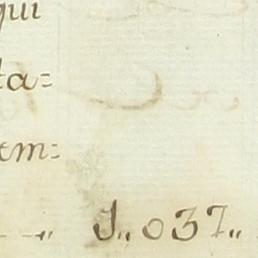 qui
ta=
em=
„ 1„037„